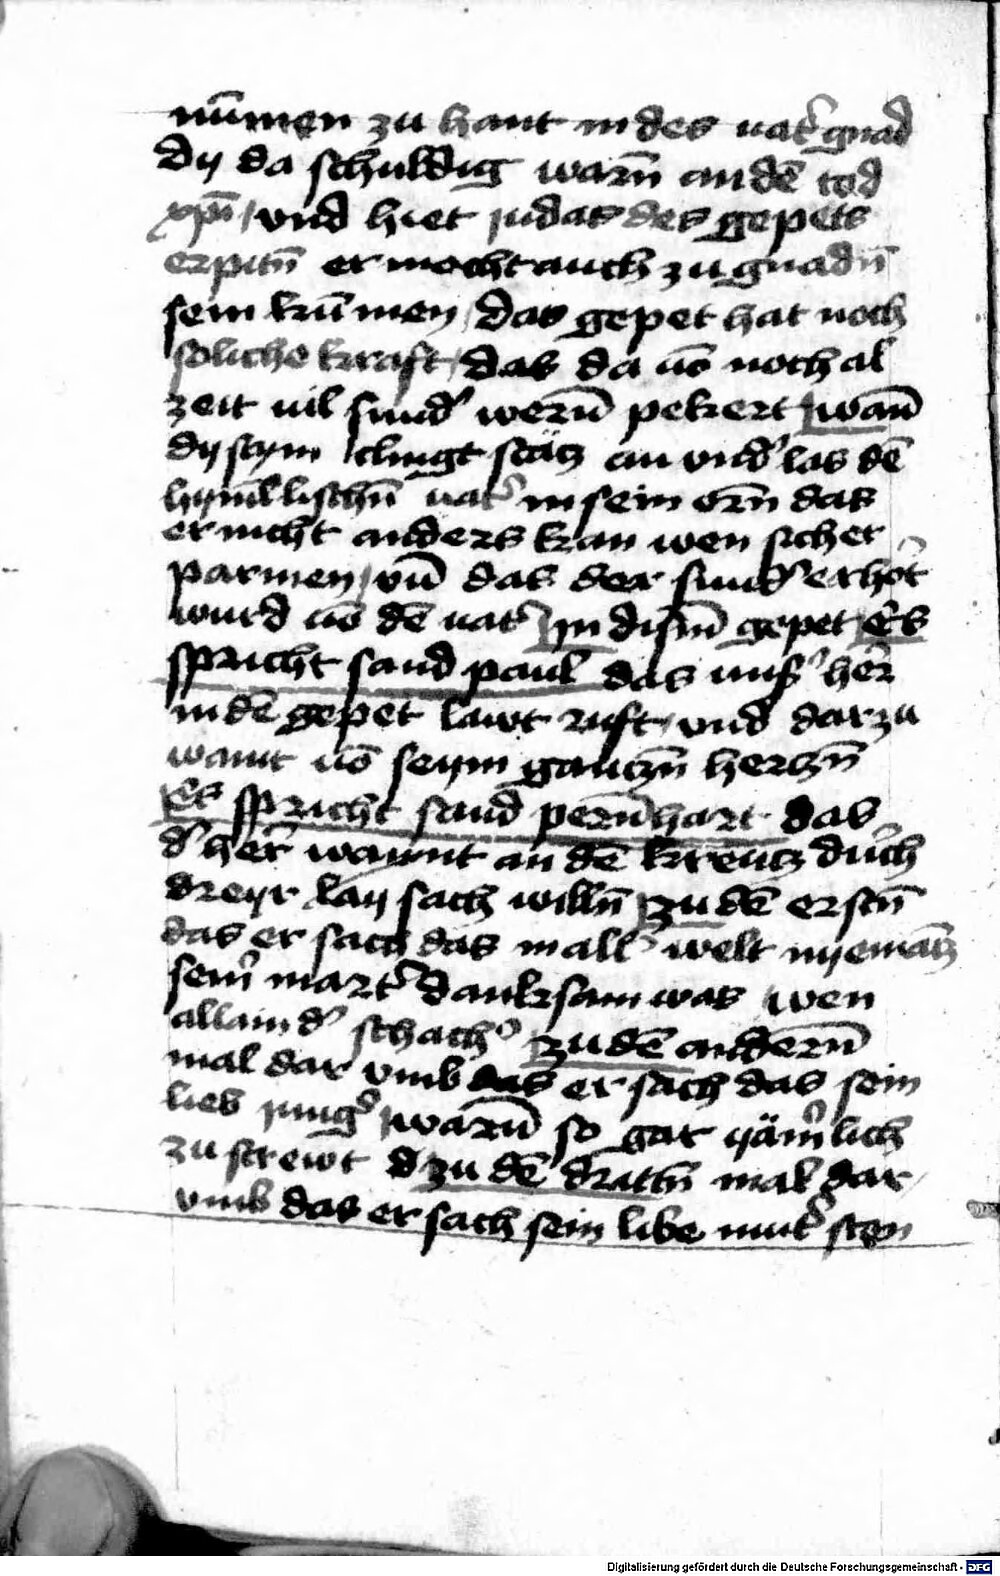 nūmen zu hant in des vat͛ gnad
dy da schuldig warn̄ an dē tod
xp̄i / vnd hiet judas des gepets
erpitn̄ er mocht auch zu gnadn̄
sein kūmen / das gepet hat noch
soliche kraft / das da vō noch al
zeit vil sund͛ wern̄ pekert / wan̄
dy stym clingt stätz an vnd͛ las dē
hym̄llischn̄ vat͛ in sein orn̄ das
er nicht anders kan wen sich er
parmen / vn̄ das der sund͛ erhört
wurd vō dē vat͛ In dism̄ gepet Es
spricht sand paul das uns͛ her̄
in dē gepet lawt ruft / vnd darzu
waint vō seym gantzn̄ hertzn̄
Es spricht sand pern̄hart das
d͛ her̄ waynt an dē kreutz durch
dreyr lay sach willn̄ zu dē erstn̄
das er sach das in all͛ welt nyemātz
sein͛ mart͛ danksam was / wen
allain d͛ schach͛ zu dē andern̄
mal dar vmb das er sach das sein
lieb jung͛ warn̄ so gar yäm͛lich
zu strewt d zu dē drittn̄ mal dar
vmb das er sach sein libe mut͛ sten
Digitalisierung gefördert durch die Deutsche Forschungsgemeinschaft - DFG